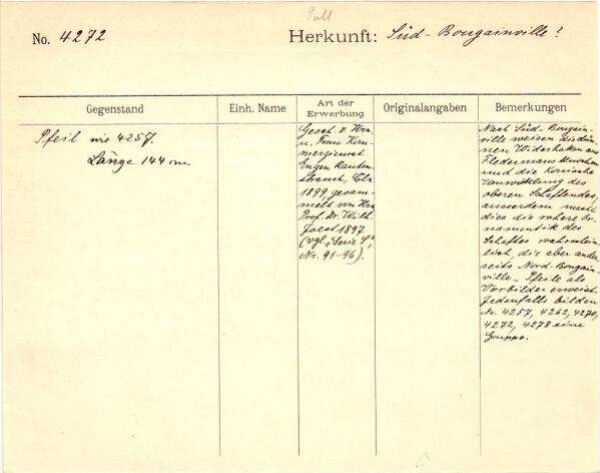 No. 4272
Herkunft: Süd-Bougainville?
Gegenstand
Einh. Name
Art der Erwerbung
Originalangaben
Bemerkungen
Pfeil wie 4257.
Länge 144 cm
Gesch. v. Hrn.
u. Frau Kom-
merzienrat
Eugen Rauten-
strauch, Cöln
1899 gesam-
melt von Hrn.
Prof. Dr. Wilh.
Joest 1897
(vgl. "Serie S",
No. 91-96).
Nach Süd-Bougain-
ville weisen die dün-
nen Widerhaken aus
Fledermausknochen
und die konische
Umwicklung des
oberen Schaftendes,
ausserdem macht
dies die rohere Or-
namentik des
Schaftes wahrschein-
lich, die aber ander-
seits Nord-Bougain-
ville-Pfeile als
Vorbilder erweist.
Jedenfalls bilden
No. 4257, 4262, 4270,
4272, 4278 eine
Gruppe.